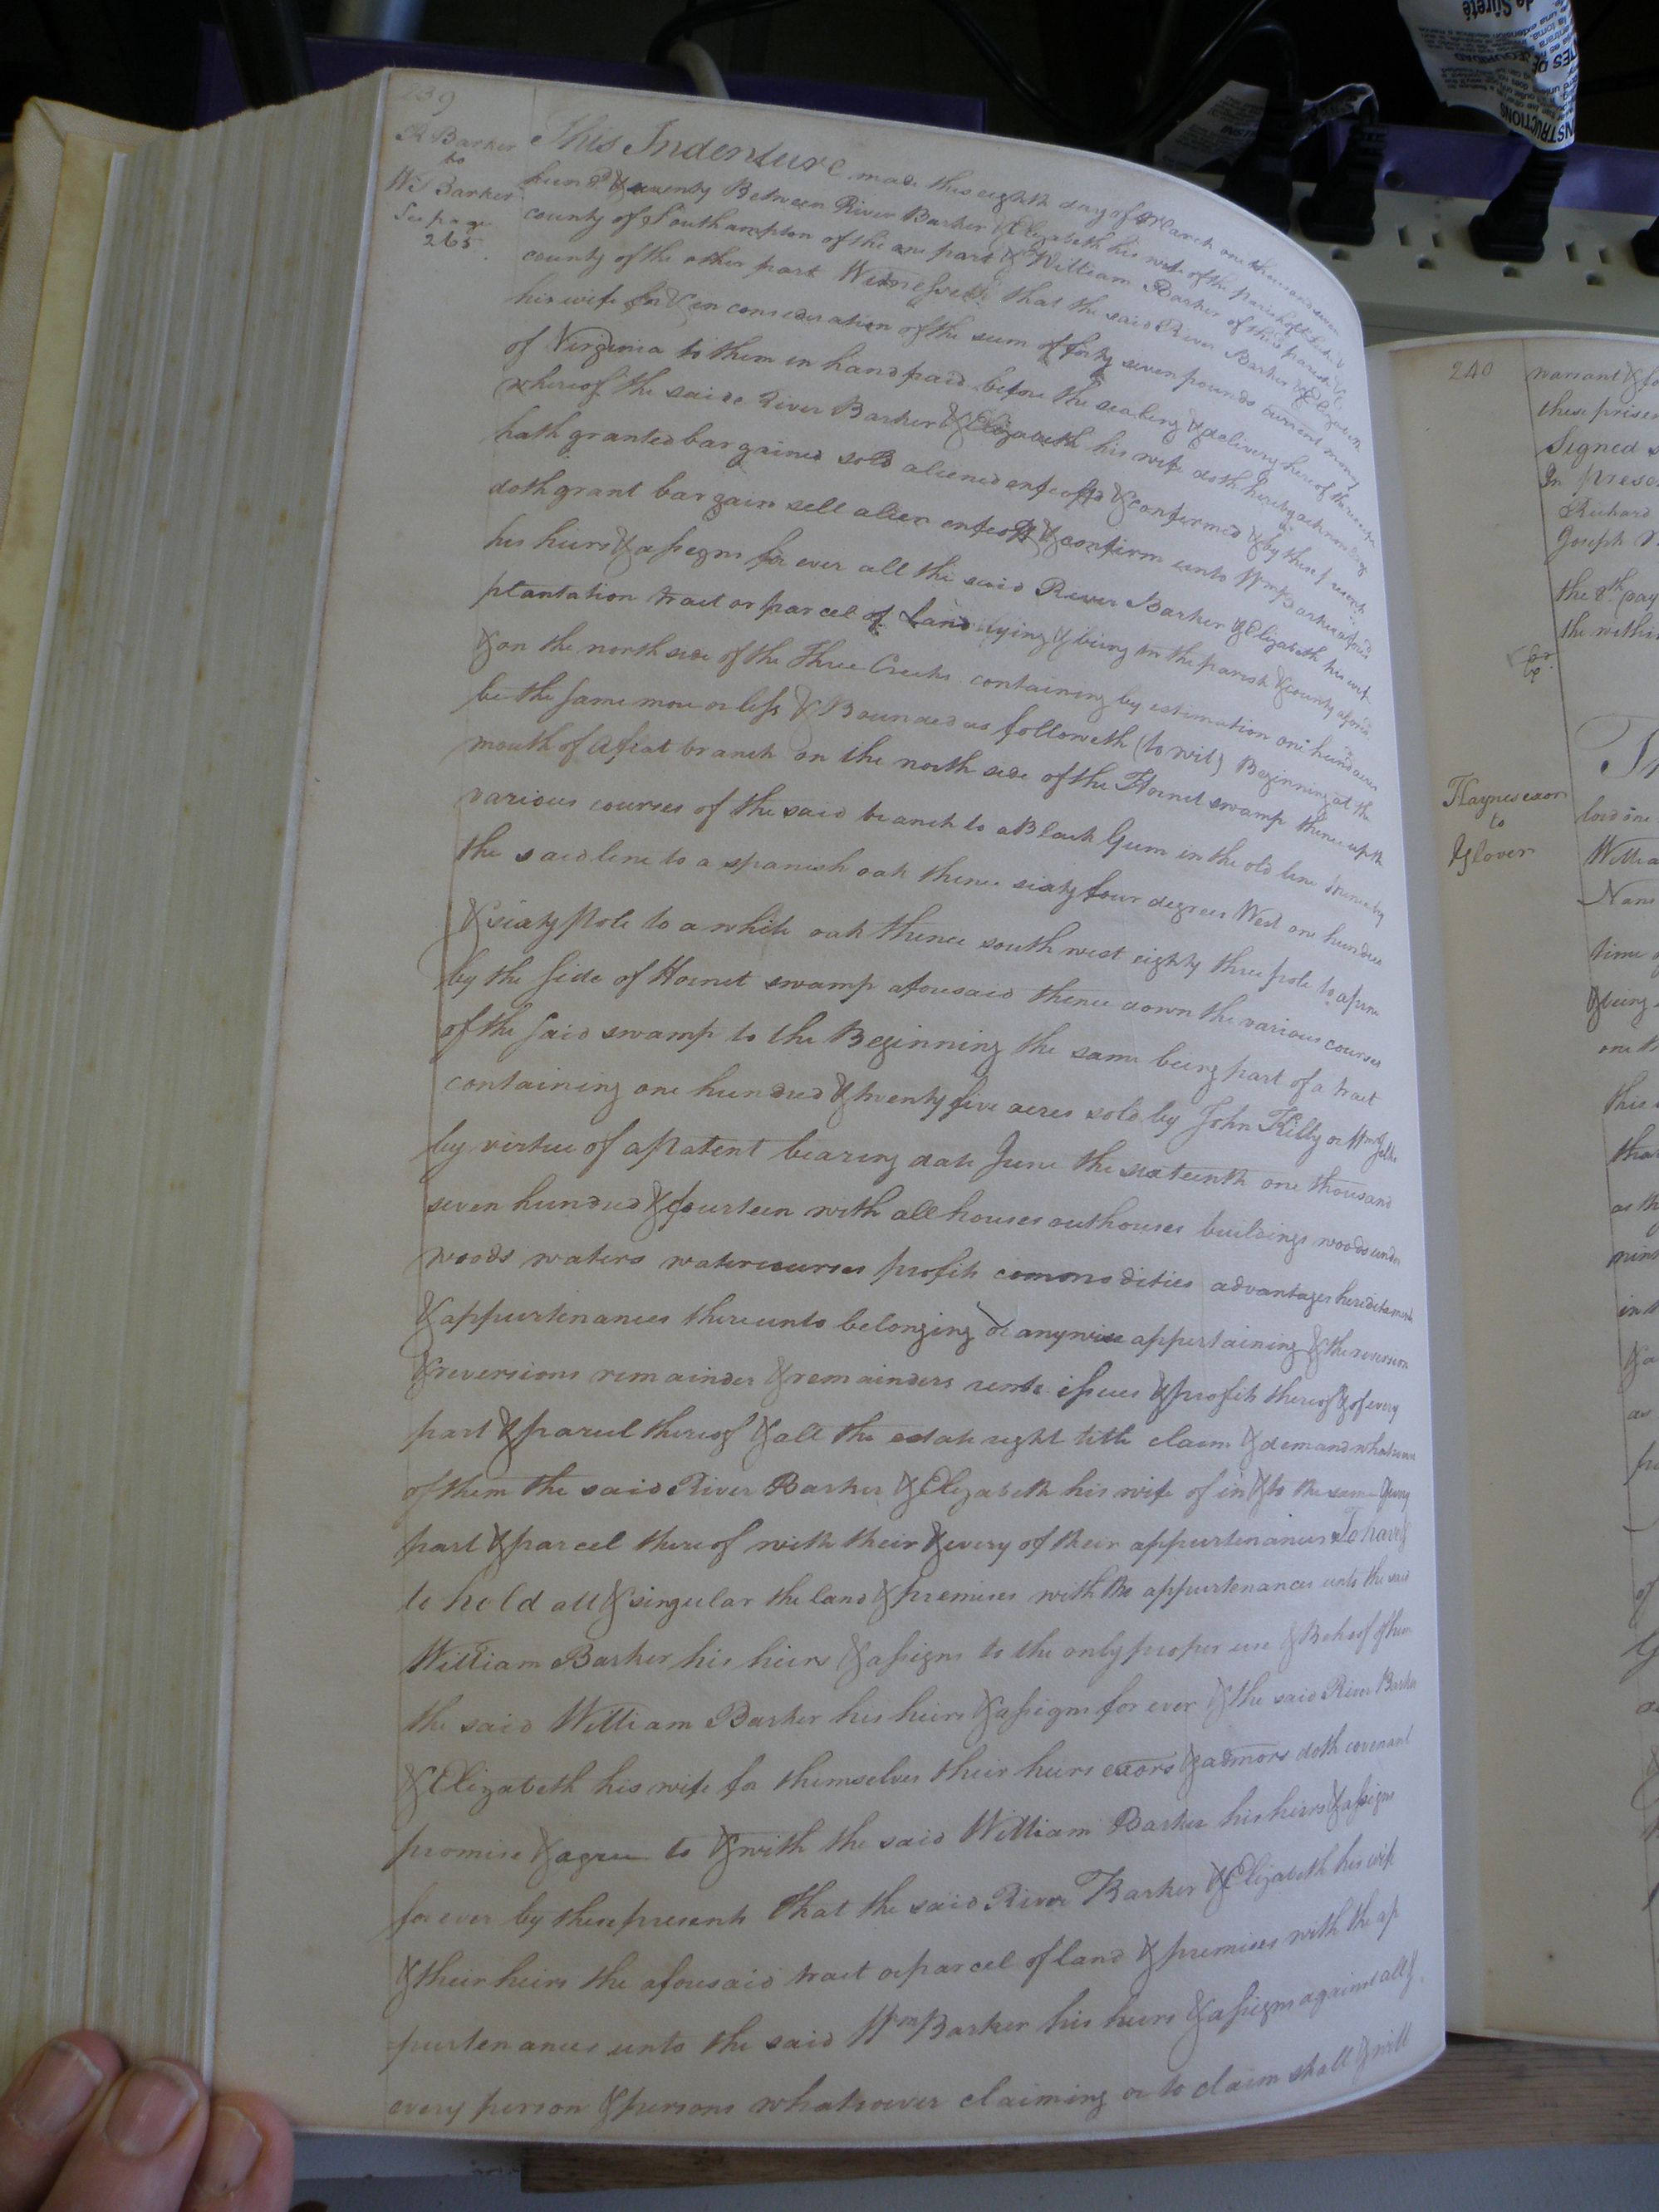 239
R Barker
to
W Barker
See page
265
This Indenture made this eighth day of March one thousand seven
hund.d & seventy Between River Barker & Elizabeth his wife of the parish of
county of Southampton of the one part & William Barker of the parish &
county of the other part Witnesseth that the said River Barker & Elizabeth
his wife for & in consideration of the sum of forty seven pounds current money
of Virginia to them in hand paid before the sealing & delivery hereof the receipt
whereof the said River Barker & Elizabeth his wife doth hereby acknowledge
hath granted bargained sold aliened enfeoffd & confirmed & by these presents
doth grant bargain sell alien enfeoff & confirm unto Wm Barker afores.d
his heirs & assigns for ever all the said River Barker & Elizabeth his wife
plantation tract or parcel of Land lying & being in the parish & county afores.d
& on the north side of the Three Creeks containing by estimation one hund acres
be the same more or less & Bounded as followeth (to wit) Beginning at the
mouth of a flat branch on the north side of the Hornet swamp thence up the
various courses of the said branch to a Black Gum in the old line thence by
the said line to a spanish oak thence sixty four degrees West one hundred
& sixty Pole to a white oak thence south west eighty three pole to a pine
by the side of Hornet swamp aforesaid thence down the various courses
of the said swamp to the Beginning the same being part of a tract
containing one hundred & twenty five acres sold by John Killy or Wm
by virtue of a Patent bearing date June the sixteenth one thousand
seven hundred & fourteen with all houses outhouses buildings woods under
woods waters watercourses profits commodities advantages hereditaments
& appurtenances thereunto belonging or anywise appertaining & the reversion
& reversions remainder & remainders rents issues & profits thereof & of every
part & parcel thereof & all the estate right title claim & demand whatsoever
of them the said River Barker & Elizabeth his wife of in & to the same & every
part & parcel thereof with their & every of their appurtenances To have &
to hold all & singular the land & premises with the appurtenances unto the said
William Barker his heirs & assigns to the only proper use & Behoof of him
the said William Barker his heirs & assigns for ever & the said River Barker
& Elizabeth his wife for themselves their heirs exors & admors doth covenant
promise & agree to & with the said William Barker his heirs & assigns
for ever by these presents that the said River Barker & Elizabeth his wife
& their heirs the aforesaid tract or parcel of land & premises with the ap
purtenances unto the said Wm Barker his heirs & assigns against all &
every person & persons whatsoever claiming or to claim shall & will
240
warrant &
these presen
Signed s
In presen
Richard
Joseph
the 8th day
the within
Haynes exor
to
Glover
lord one
Willia
Nan
time o
& being
one th
this
that
as th
nin
in